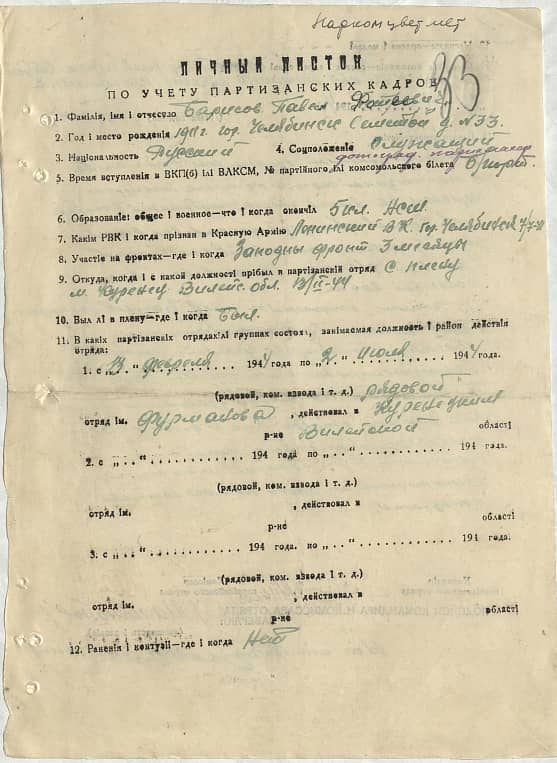 Наркомцветмет
33
ЛИЧНЫЙ ЛИСТОК
ПО УЧЕТУ ПАРТИЗАНСКИХ КАДРОВ
1. Фамілія, імя і отчество Барисов Павел
2. Год і место рождения 1911г. гор. Челябинск д. №33.
3. Національность Русский 4. Соцположеніе Служащий
5. Время вступленія в ВКП(б) ілі ВЛКСМ, № партійного, ілі комсомольского білета б/парт.
6. Образованіе: общее і военное—что і когда окончіл 5 кл. Нсш
7. Какім РВК і когда прізван в Красную Армію Ленинский В.К. гор. Челябинск
8. Участіе на фронтах—где і когда Западны фронт 3 месяцы
9. Откуда, когда і с какой должності прібыл в партізанскій отряд С плену
м. Куренец Вилейс. обл. 13/II-44
10. Был лі в плену—где і когда Был.
11. В какіх партізанскіх отрядах ілі группах состоял, занімаемая должность і район действія
отряда:
1. с „13“ февраля 1944 года по „2“ июля 1944 года.
(рядовой, ком. взвода і т. д.) рядовой
отряд ім. Фурманова, действовал в Куренецким
р-не Вилейской області
2. с „..“ ............ 194 года по „..“ ............ 194 года.
(рядовой, ком. взвода і т. д.)
отряд ім. , действовал в
р-не області
3. с „..“ ............ 194 года. по „..“ ............ 194 года.
(рядовой, ком. взвода і т. д.)
отряд ім. , действовал в
р-не області
12. Раненія і контузіі—где і когда Нет